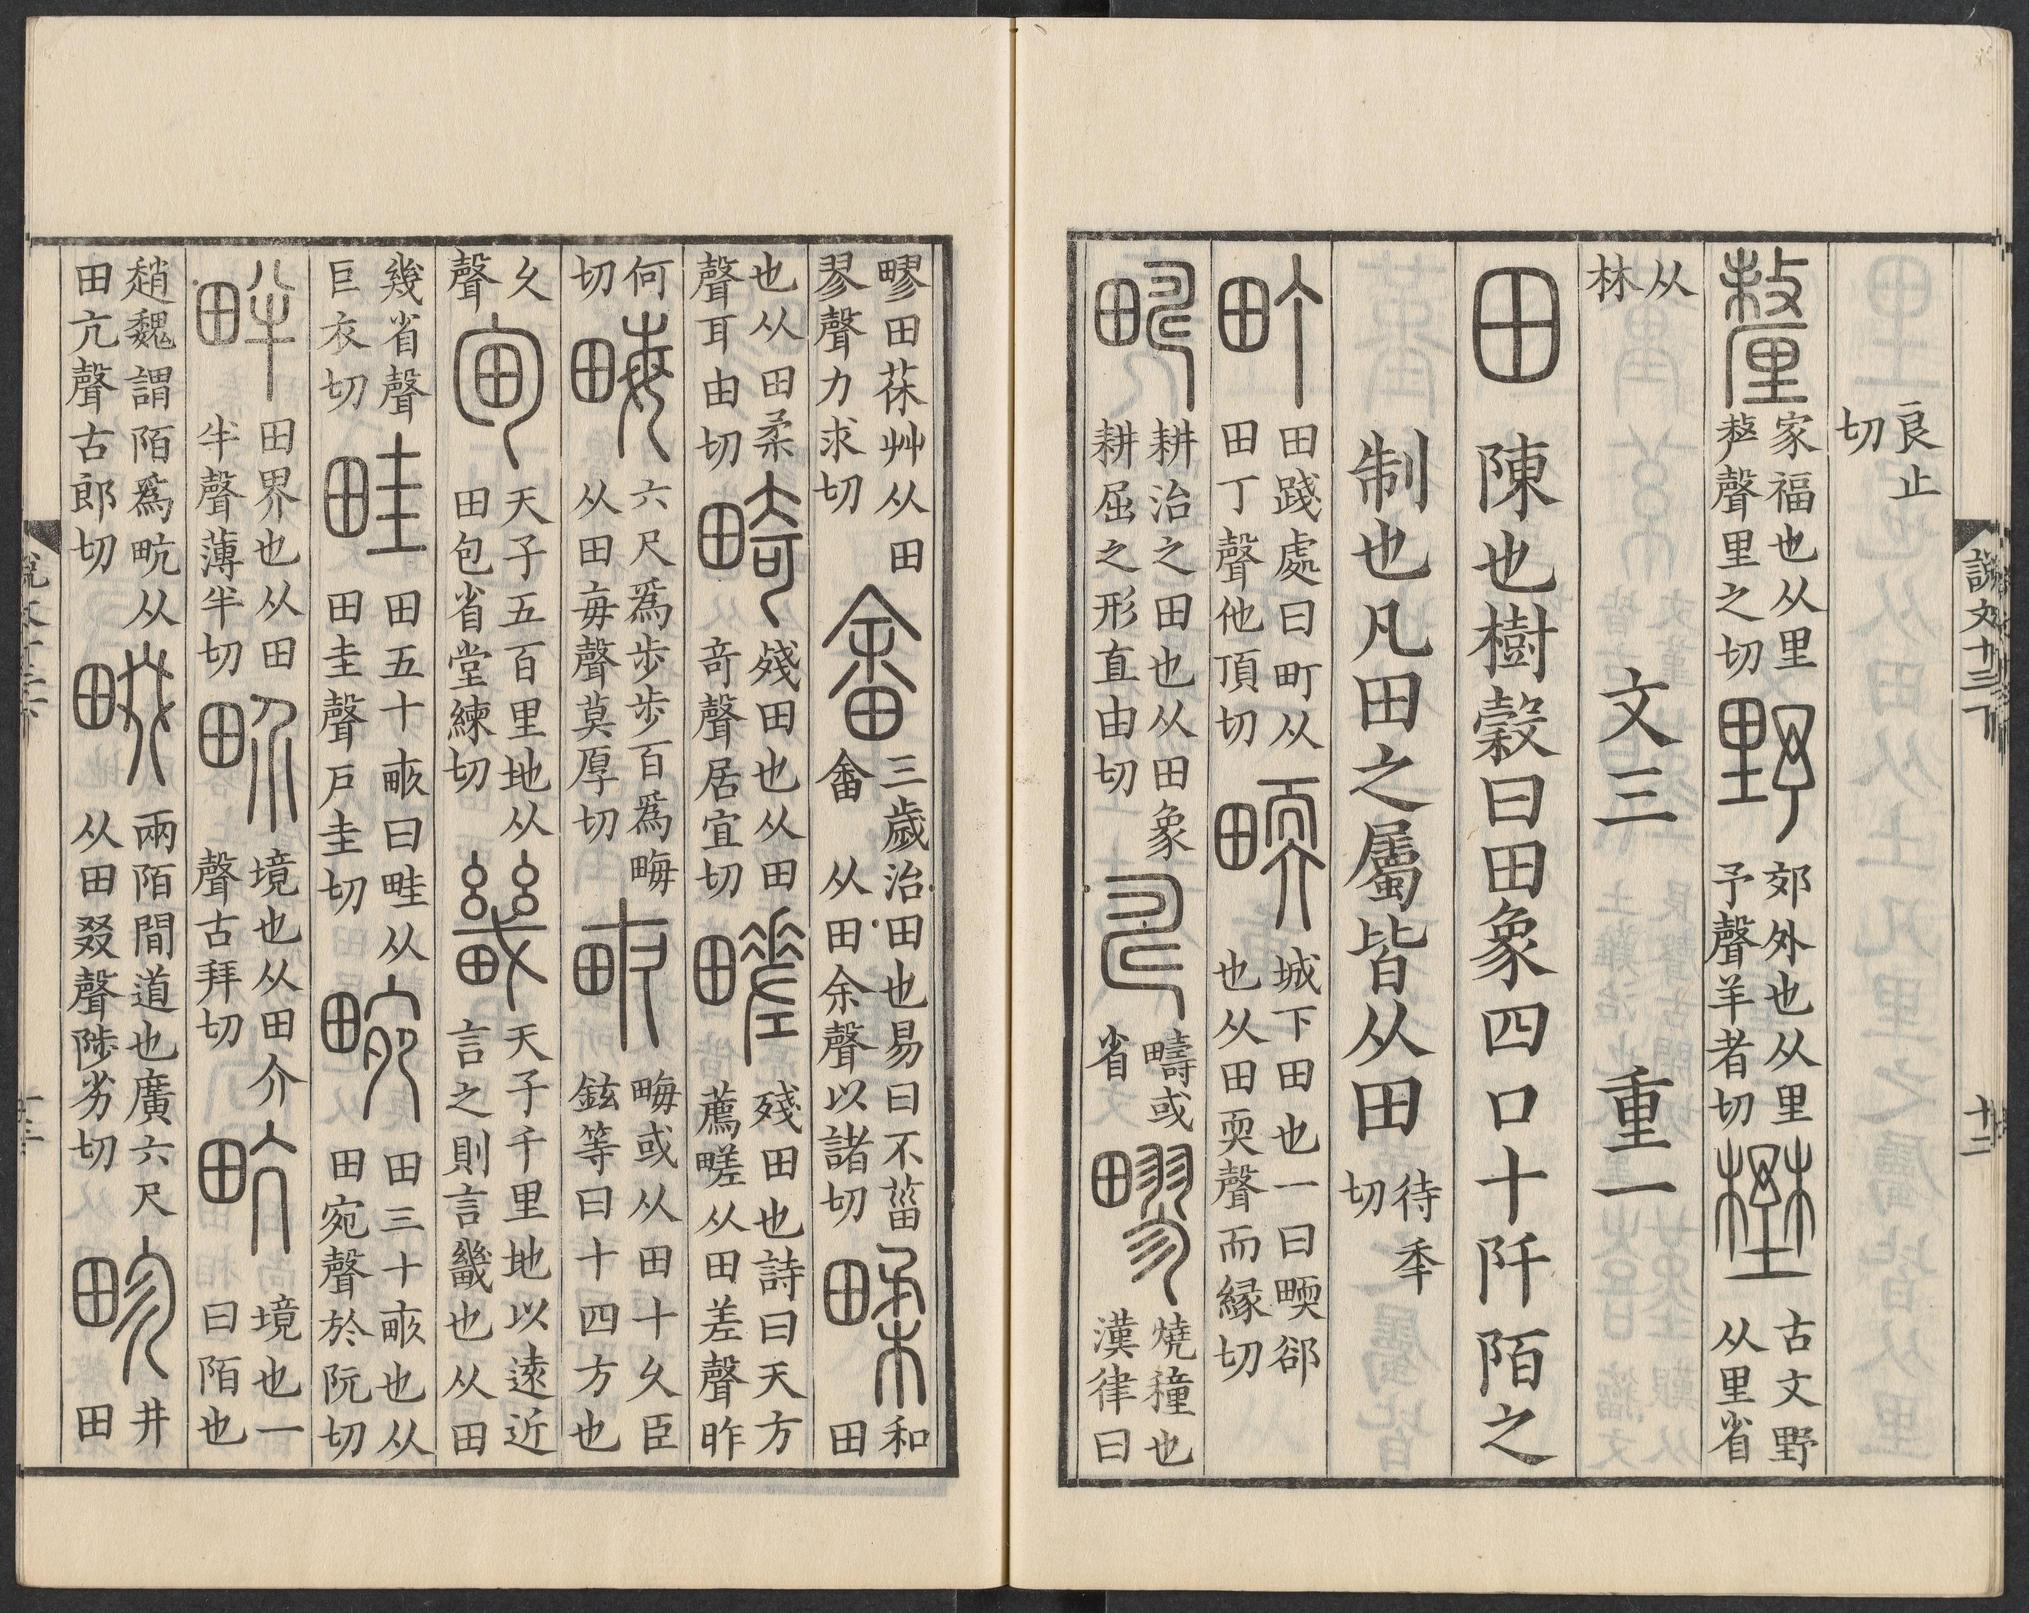 良止切
釐 家福也从里𠩺聲里之切 野 郊外也从里予聲羊者切 壄 古文野从里省
从林 文三 重一
田 陳也樹穀曰田象四囗十阡陌之
制也凡田之屬皆从田 待秊切
町 田踐處曰町从田丁聲他頂切 畎 城下田也一曰畎郤也从田耎聲而緣切
𤲮 耕治之田也从田象耕屈之形直由切 𠃬 疇或省 疁 燒穜也漢律曰
說文十三下 十二
疁田茠艸从田翏聲力求切 畬 三歲治田也易曰不葘畬从田余聲以諸切 㽥 和田
也从田柔聲耳由切 畸 殘田也从田奇聲居宜切 𤲶 殘田也詩曰天方薦𤲶从田差聲昨
何切 畮 六尺爲步步百爲畮从田每聲莫厚切 畝 畮或从田十久臣鉉等曰十四方也
久聲 甸 天子五百里地从田包省堂練切 畿 天子千里地以逺近言之則言畿也从田
幾省聲巨衣切 畦 田五十畝曰畦从田圭聲戶圭切 畹 田三十畝也从田宛聲於阮切
畔 田界也从田半聲薄半切 畍 境也从田介聲古拜切 畂 境也一曰陌也
趙魏謂陌爲畂从田亢聲古郎切 畷 兩陌閒道也廣六尺从田叕聲陟劣切 畛 井田